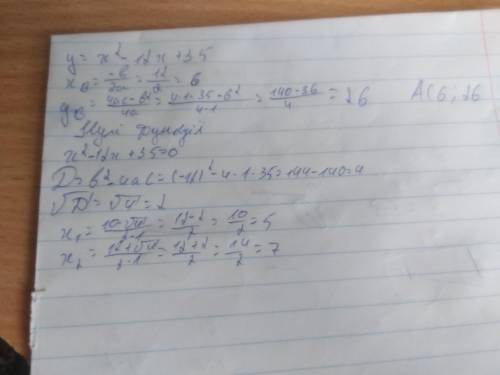 y = x² - 12x + 35
x_B = -b/2a = 12/2 = 6
y_B = 4ac-b²/4a = 4·1·35-6²/4·1 = 140-36/4 = 26 A(6; 26
Нулі функції
x² - 12x + 35 = 0
D = b² - 4ac = (-12)² - 4·1·35 = 144 - 140 = 4
√D = √4 = 2
x₁ = 10-√4/2·1 = 12-2/2 = 10/2 = 5
x₂ = 12+√4/2·1 = 12+2/2 = 14/2 = 7